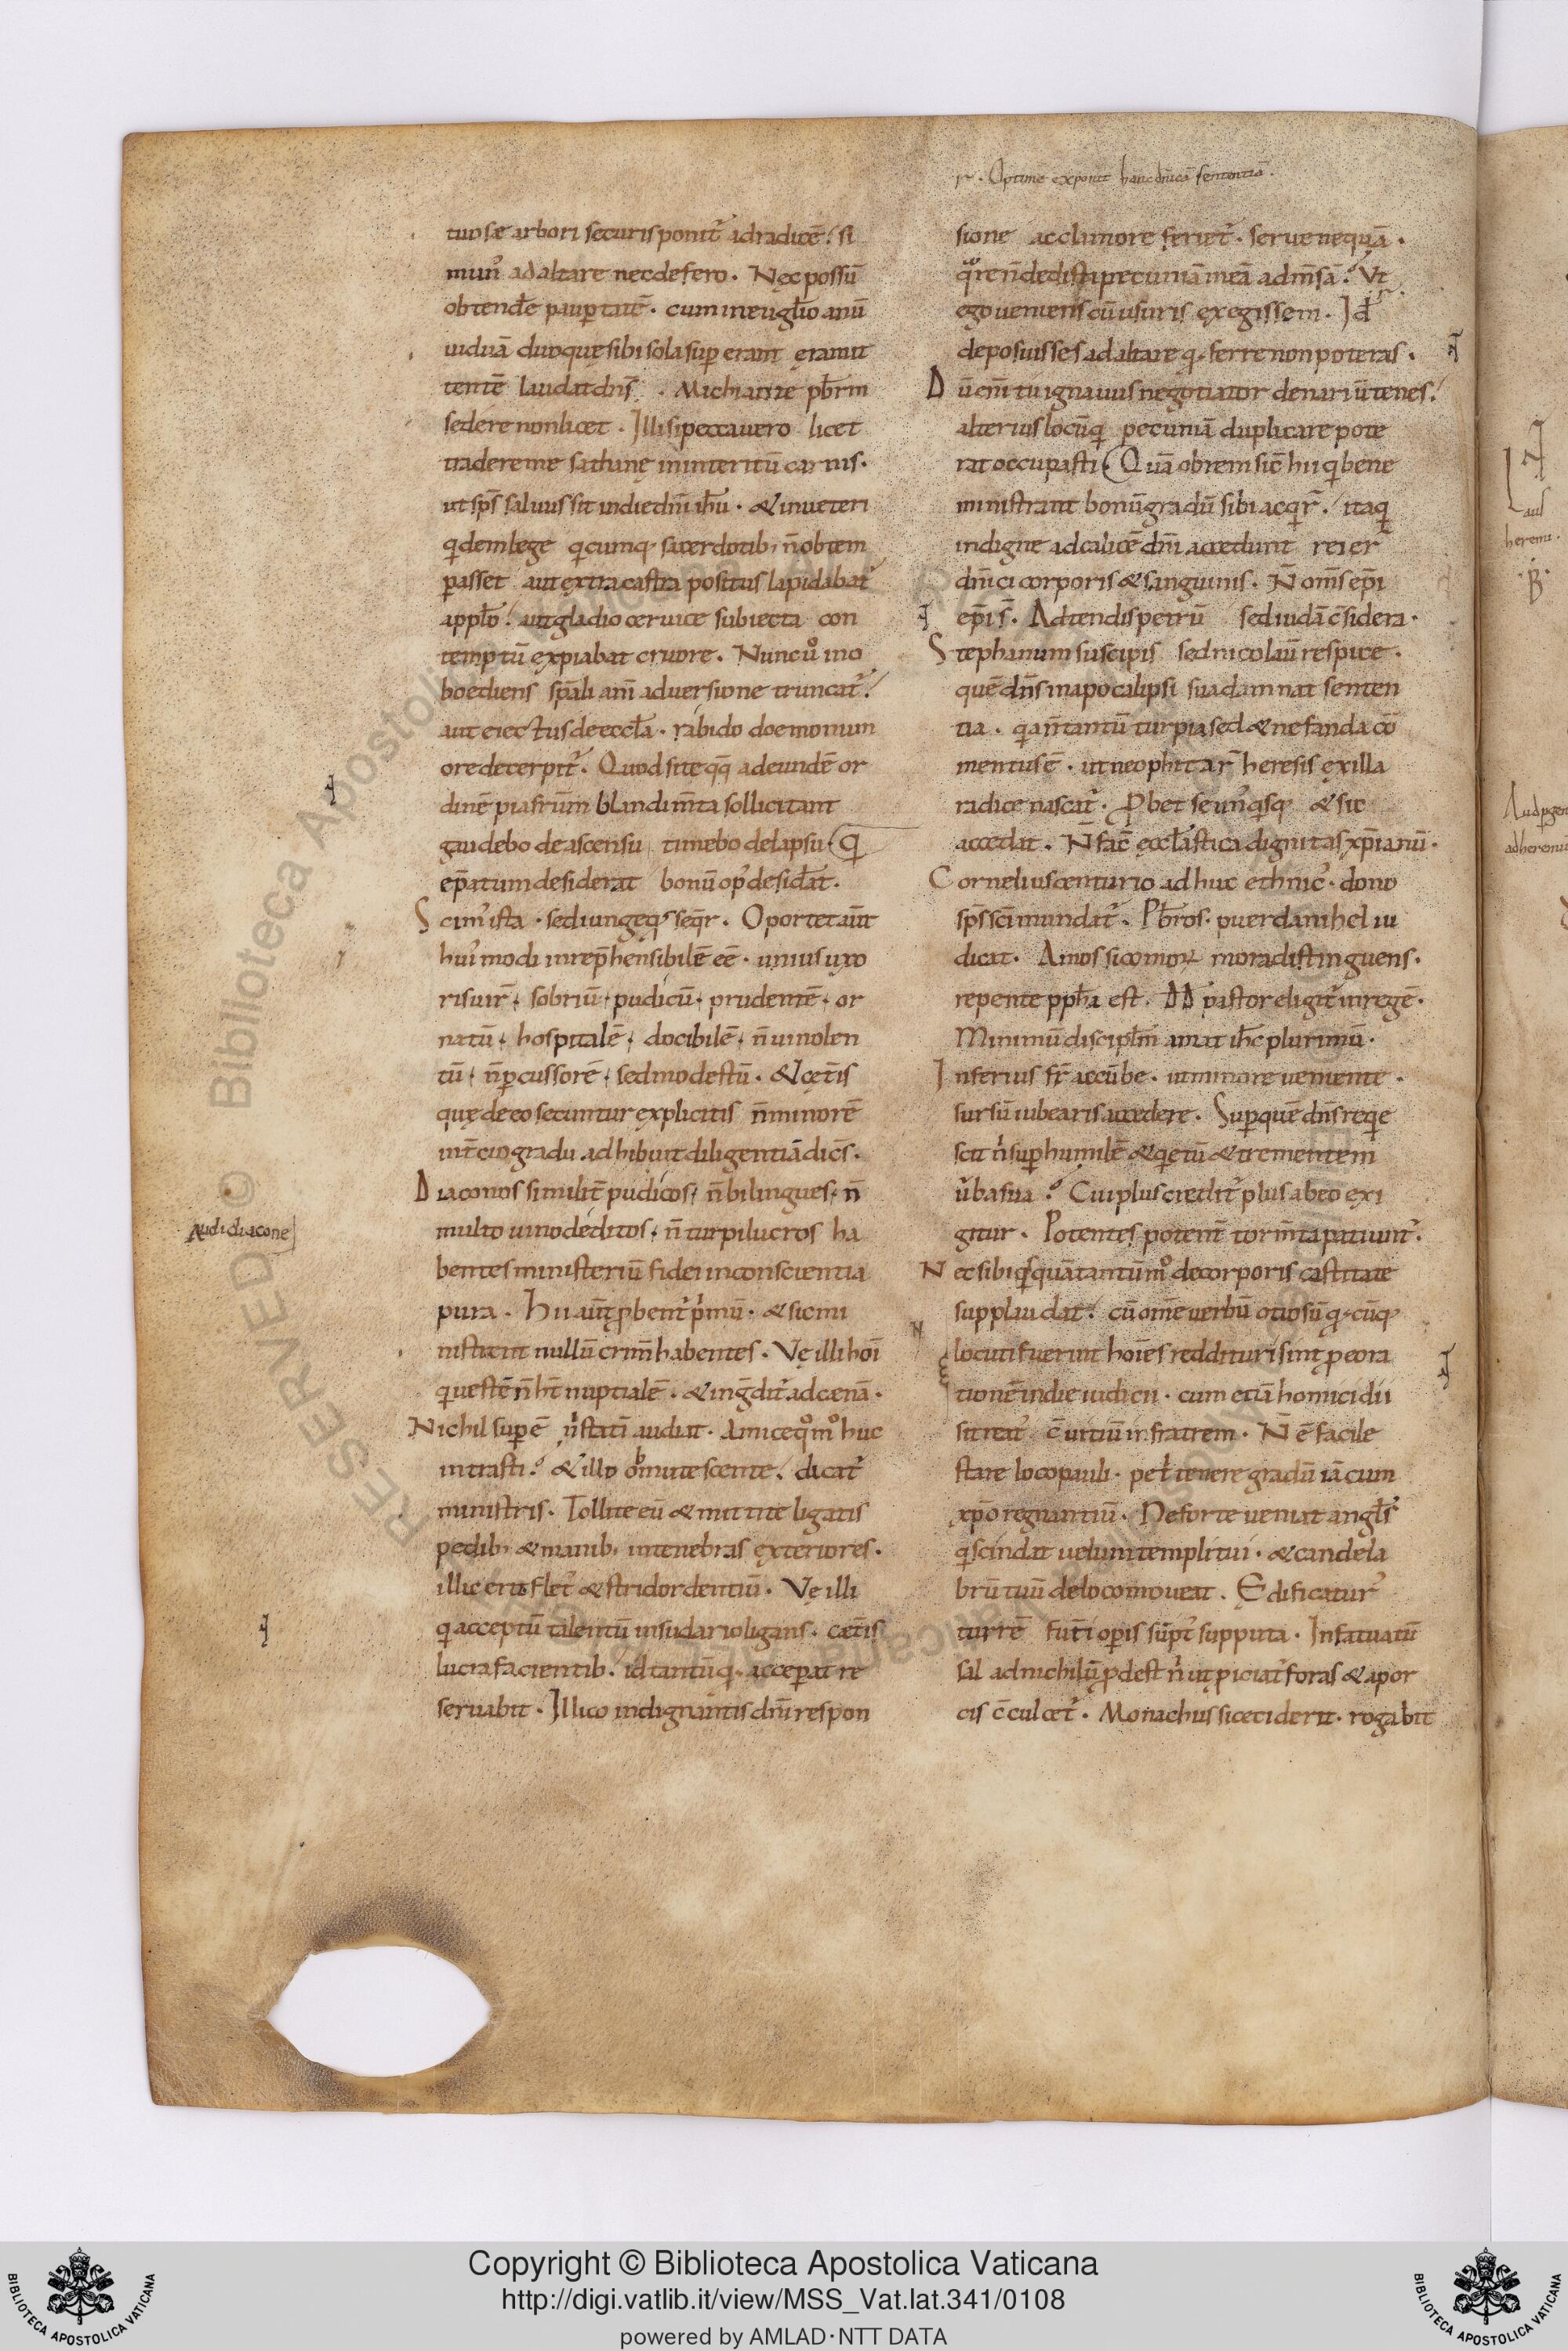 r. Optime exponit hanc dñicã sententiã.
tuosæ arbori securis ponit᷑ ad radicẽ. si
mun᷒ ad altare nec defero. Nec possũ
obtendẽ paup̱tatẽ. cum in euglio anũ
uiduã duo quę sibi sola sup̱erant ęra mit
tentẽ laudat dñs. Michi ante pb̄rm
sedere non licet. Illi si peccauero licet
tradere me sathanę in interitũ carnis.
ut sp̄s saluus sit in die dñi ih̄u. & in ueteri
qidem lege qicumq; sacerdotib; ñ obtem
p̱asset aut extra castra positus lapidabat᷑
a pplo. aut gladio ceruice subiecta con
temptũ expiabat cruore. Nunc ů ino
boediens sp̄ali animaduersione truncat᷑.
aut eiectus de eccl̄a. rabido doemonum
ore decerpit᷑. Quod si te qq̄ ad eundẽ or
dinẽ pia fr̄um blandim̄ta sollicitant
gaudebo de ascensu timebo de lapsu. Qi
ep̄atum desiderat bonũ op᷒ desid̄at.
Scim᷒ ista. sed iunge q᷒ seqr̄. Oportet aūt
hui᷒modi inrep̄hensibilẽ eẽ. unius uxo
ris uir̄. sobriũ. pudicũ. prudentẽ. or
natũ. hospitalẽ. docibilẽ. ñ uinolen
tũ. ñ p̱cussorẽ. sed modestũ. & cet̄is
quę de eo secuntur explicitis ñ minorẽ
in t̄cio gradu adhibuit diligentiã dic̄s.
Diaconos similit̄ pudicos. ñ bilingues. ñ
Audi diacone
multo uino deditos. ñ turpilucros ha
bentes ministeriũ fidei in conscientia
pura. Hii aūt ꝓbent᷑ p̓mũ. & sic mi
nistrent nullũ crim̄ habentes. Vę illi hoī
qi uestẽ ñ h̄t nuptialẽ. & ingr̄dit᷑ ad cœnã.
Nichil sup̱ ẽ n̓ statī audiat. Amice qͦmͦ huc
intrasti? & illo obmutescente. dicat᷑
ministris. Tollite eũ & mittite ligatis
pedib; & manib; in tenebras exteriores.
illic erit flet᷒ & stridor dentiũ. Vę illi
qi acceptũ talentũ in sudario ligans. cæt̄is
lucra facientib. id tantũ q; accep̱at re
seruabit. Illico indignantis dñi respon
sione ac clamore feriet᷑. serue nequã.
qͣre ñ dedisti pecuniã meã ad m̄sã? Vt
ego ueniens cũ usuris exegissem. Id ē
deposuisses ad altare q; ferre non poteras.
Dũ em̄ tu ignauus negotiator denariũ tenes.
alterius locũ qi pecuniã duplicare pote
rat occupasti. Quã obrem sic̄ hii qi bene
ministrant bonũ gradũ sibi acqir̄. ita qi
indigne ad calicẽ dñi accedunt rei er̄
dñici corporis & sanguinis. N̄ om̄s ep̄i
ep̄i s̄. Adtendis petrũ sed iudã c̄sidera.
Stephanum suscipis sed nicolaũ respice.
quẽ dñs in apocalipsi sua damnat senten
tia. qia ñ tantũ turpia sed & nefanda cō
mentus ẽ. ut neophitar̄ heresis ex illa
radice nascat᷑. Ꝓbet se un᷒qisq; & sic
accedat. N̄ fac̄ eccl̄astica dignitas xp̄ianũ.
Cornelius centurio adhuc ethnic᷒. dono
sp̄s sc̄i mundat᷑. Pb̄ros. puer danihel iu
dicat. Amos sicomorꝝ mora distinguens.
repente pph̄a est. DD pastor eligit᷑ in regẽ.
Minimũ discipl̄m amat ih̄c plurimũ.
Inferius fr̄ accũbe. ut minore ueniente.
sursũ iubearis accedere. Sup̱ quẽ dñs reqie
scit n̓ sup̱ humilẽ & qietũ & trementem
ůba sua? Cui plus credit᷑ plus ab eo exi
gitur. Potentes potent̄ torm̄ta patiunt᷑.
Nec sibi qisquã tantũmͦ de corporis castitate
supplaudat. cũ om̄e uerbũ otiosũ q; cũq;
locuti fuerint hoīes reddituri sint ꝓ eo ra
tionẽ in die iudicii. cum etiã homicidii
sit reat᷒ c̄uitiũ in fratrem. N̄ ẽ facile
stare loco pauli. pet̓ tenere gradũ iã cum
xp̄o regnantiũ. Ne forte ueniat angl̄s
qi scindat uelum templi tui. & candela
brũ tuũ de loco moueat. Ędificatur᷒
turrẽ fut̄i op̱is sūpt᷒ supputa. Infatuatũ
sal ad nichilũ ꝓdest n̓ ut ꝓiciat᷑ foras & a por
cis c̄culcet᷑. Monachus si ceciderit. rogabit